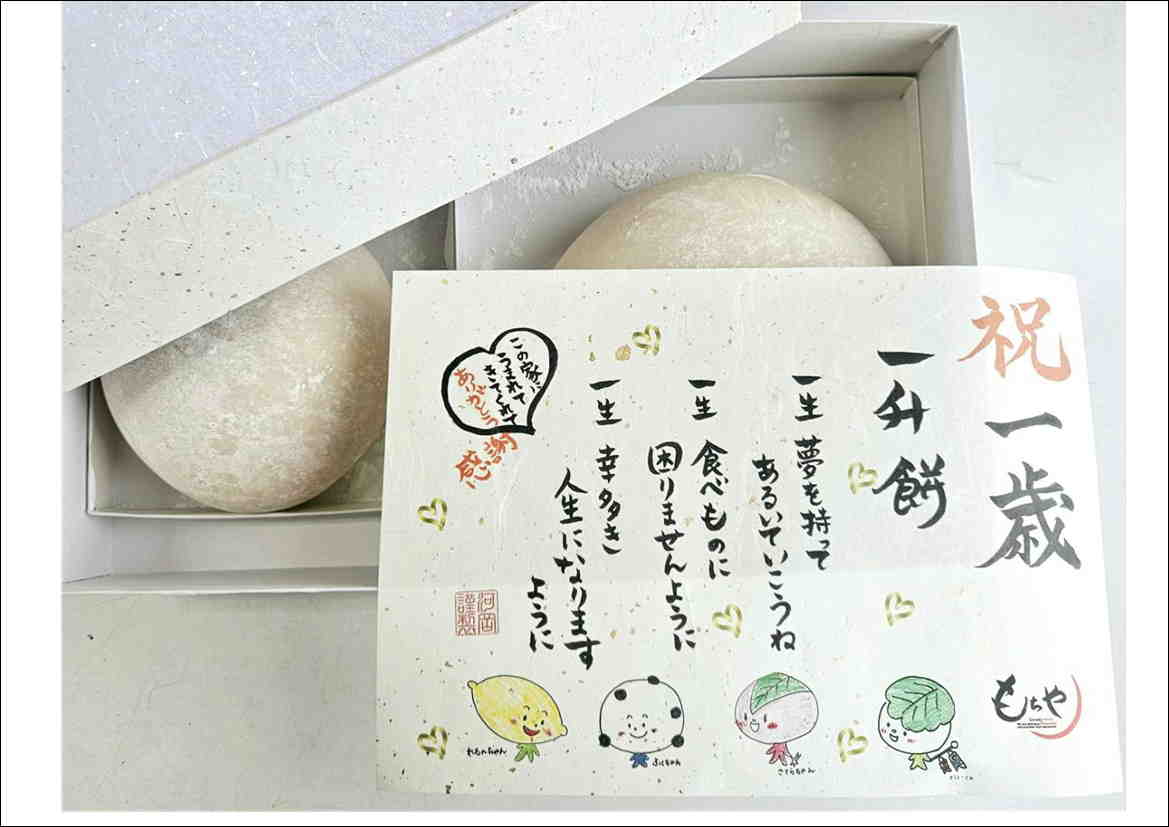 祝一歳
一升餅
一生 夢を持って
あるいていこうね
一生 食べものに
困りませんように
一生 幸多き
人生になります
ように
この家に
うまれて
きてくれて
ありがとう
感謝
もちや
さくらちゃん